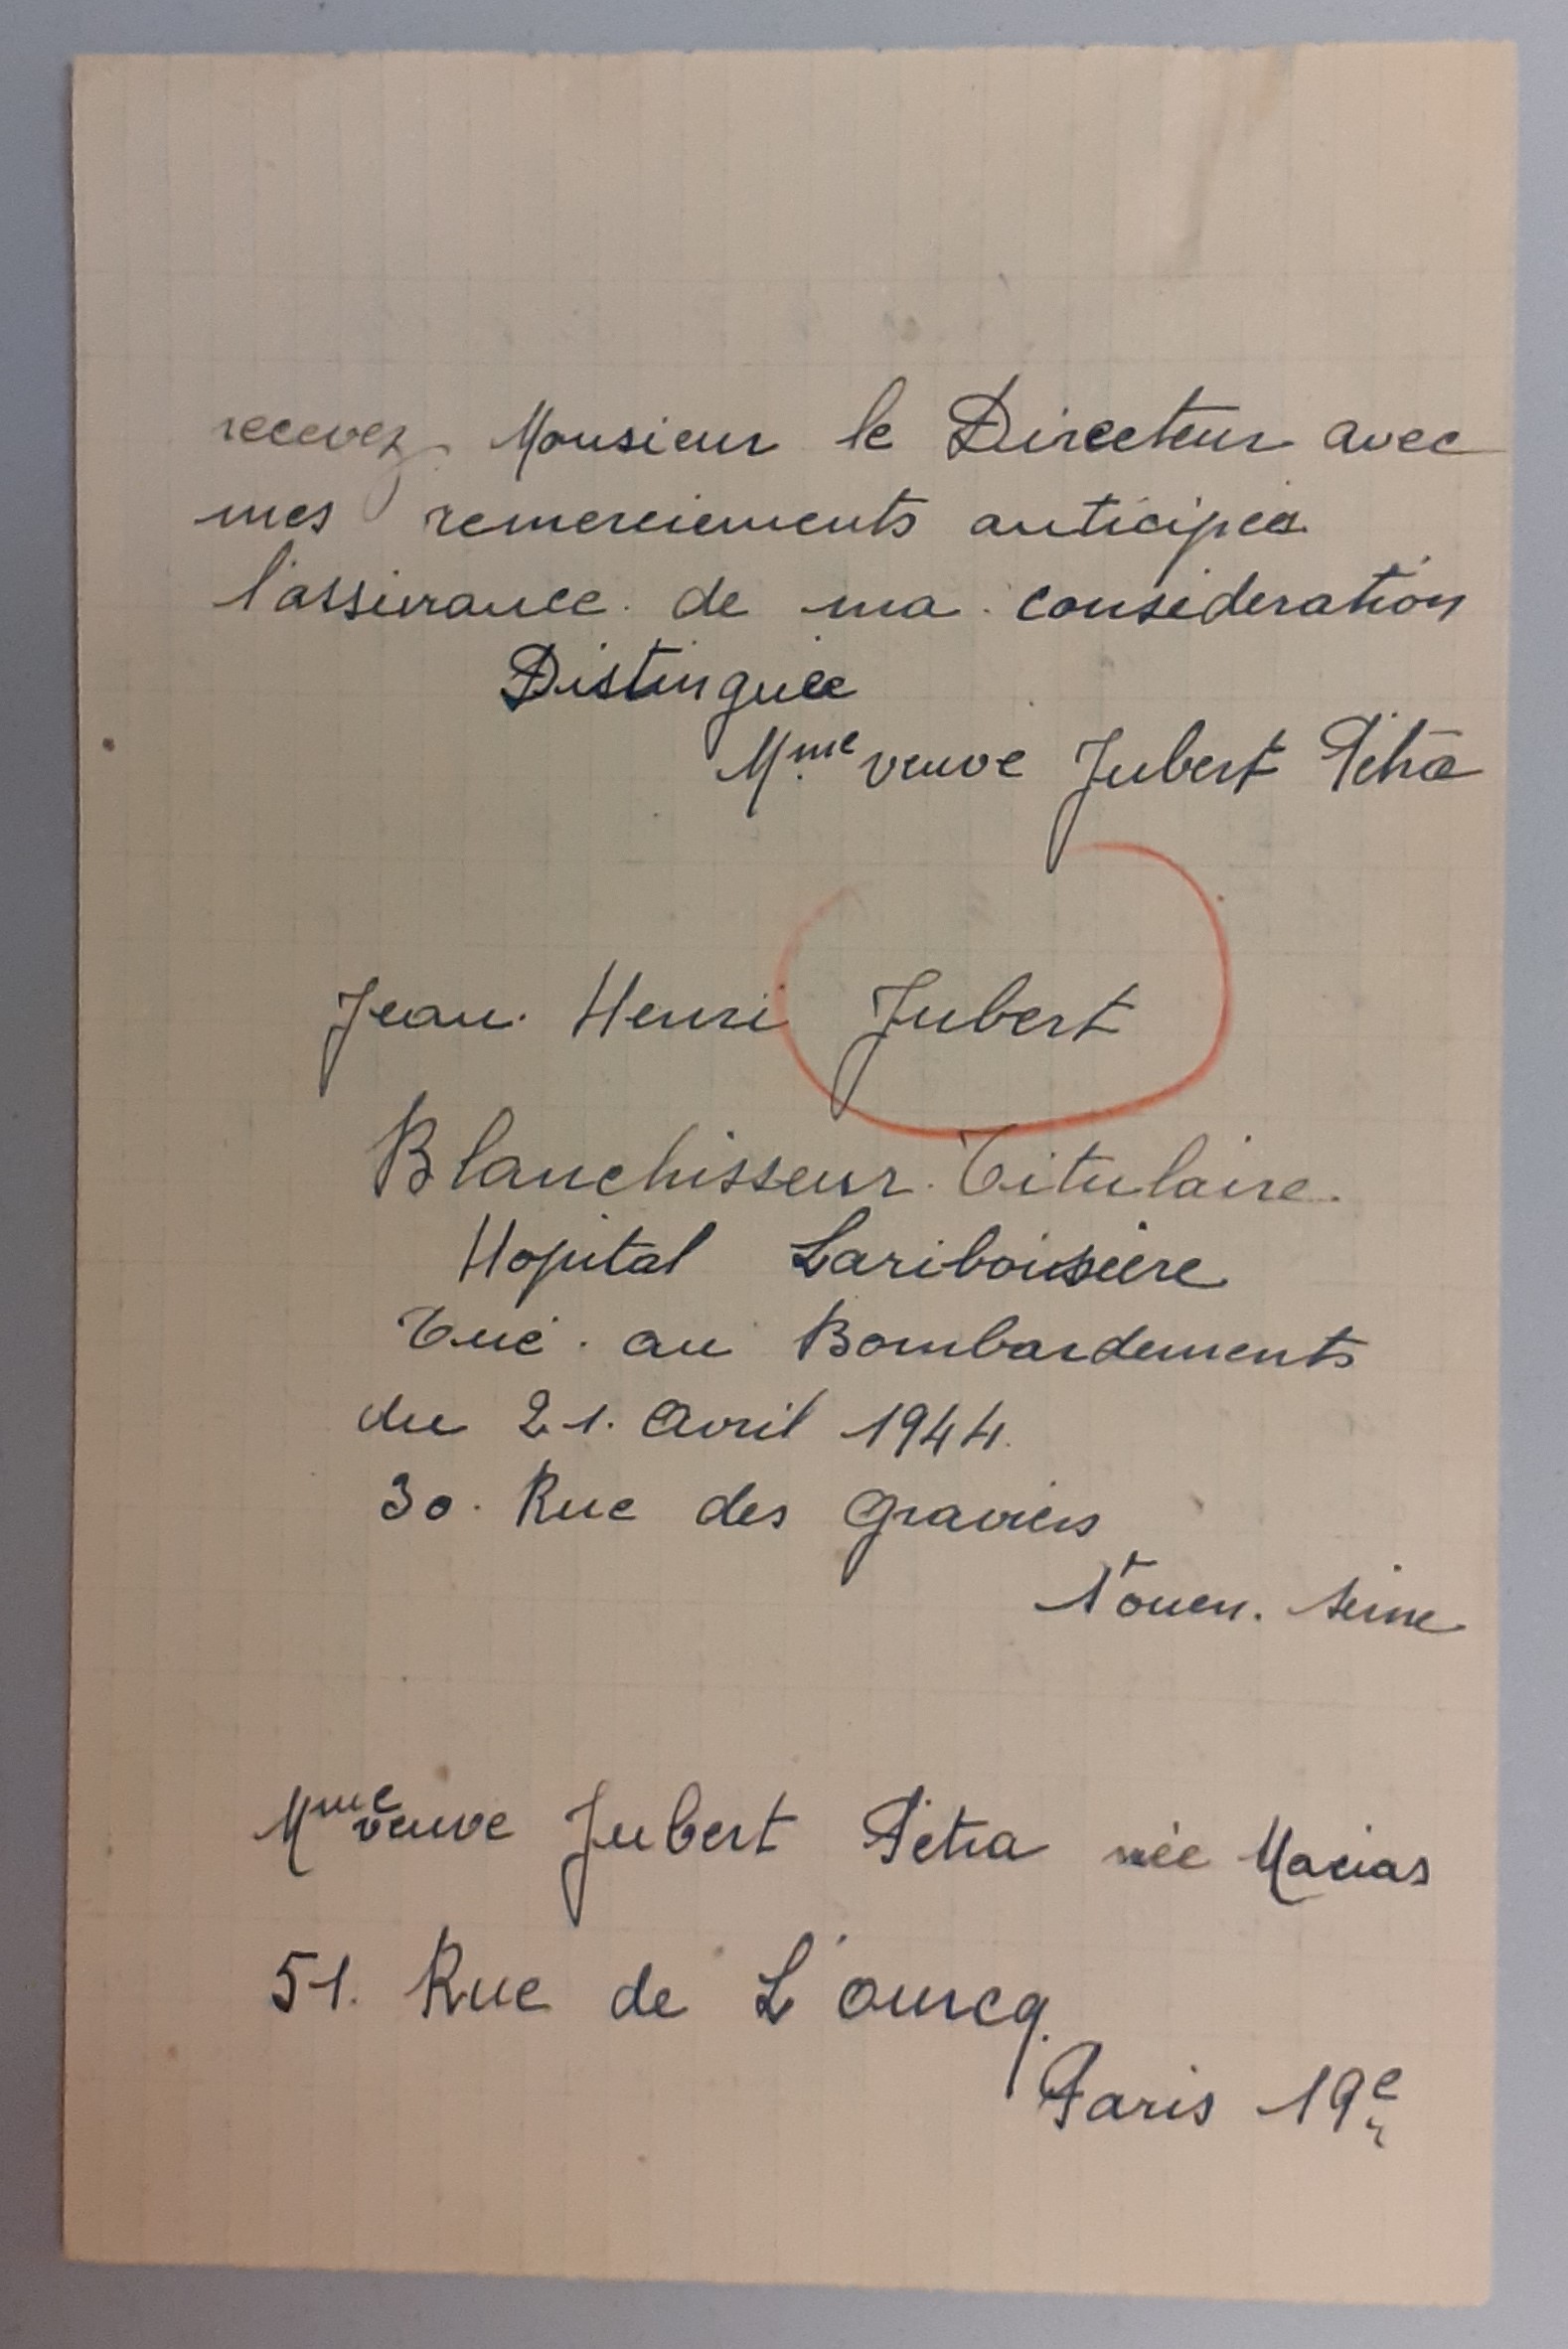 recevez Monsieur le Directeur avec
mes remerciements anticipés
l'assurance de ma consideration
Distinguée
Mme veuve Jubert Pétra
Jean Henri Jubert
Blanchisseur Titulaire.
Hopital Lariboisière
Tué au Bombardements
du 21. Avril 1944.
30. Rue des Graviers
St Ouen. Seine
Mme veuve Jubert Pétra née Macias
51. Rue de L'Ourcq.
Paris 19e